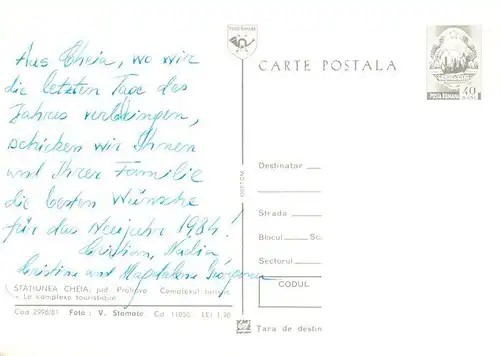 Aus Cheia, wo wir
die letzten Tage des
Jahres verbringen,
schicken wir Ihnen
und Ihrer Familie
die besten Wünsche
für das Neujahr 1984!
Cristian, Nadia,
Cristina und Magdalena
STAȚIUNEA CHEIA, jud. Prahova Complexul turistic
Le complexe touristique
Cod 2996/81 Foto: V. Stamate Cd. 11050 LEI 1,30
POȘTA ROMÂNĂ
CARTE POSTALA
POȘTA ROMÂNĂ 40 BANI
Destinatar
Strada
Blocul Sc.
Sectorul
CODUL
Țara de destin